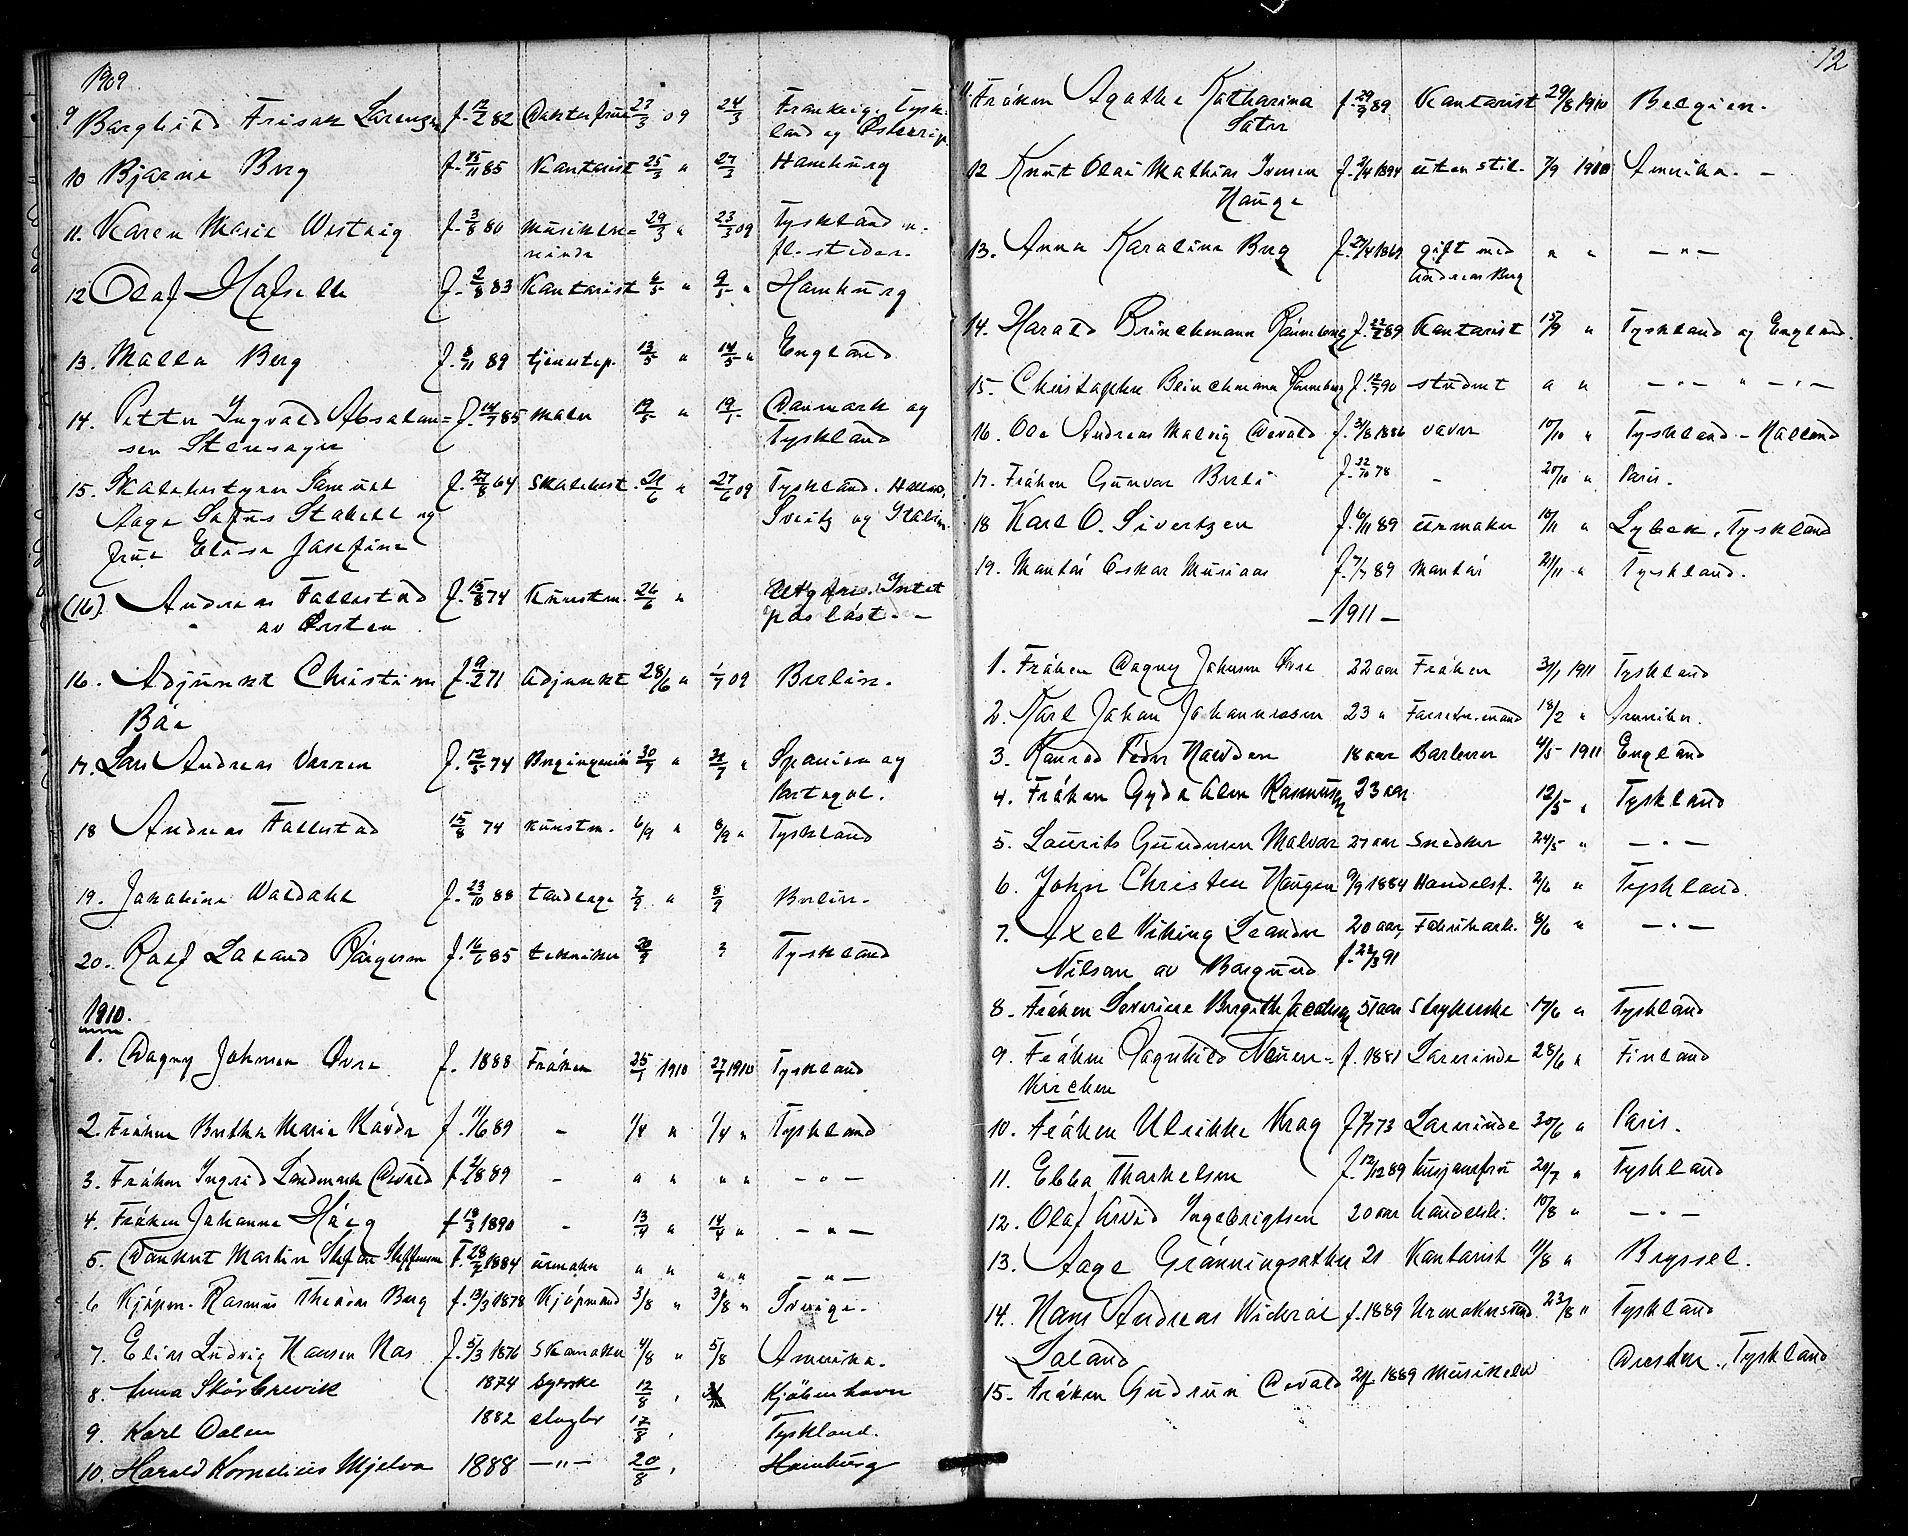 1909
9 Borghild Frison Lorenzen f. 12/2 82 Doktorfrue 23/3 09 24/3 Frankrige, Tysk-
land og Østerrig
10 Bjarne Berg f. 15/11 85 Kontorist 25/3 " 27/3 Hamburg
11. Karen Marie Westvig f. 3/8 80 Musiklæ- 29/3 " 23/3 09 Tyskland m.
rerinde fl. steder.
12 Olaf Hofseth f. 2/8 83 Kontorist 6/5 " 9/5 " Hamburg
13. Malla Berg 89 tjenestep. 13/5 " 14/5 " England
14. Petter Ingvald Absalon- f. 14/7 85 Maler 19/5 " 19/5 Danmark og
sen Stensager Tyskland
15. Skolebestyrer Samuel f. 27/8 64 Skolebest. 21/6 " 27/6 09 Tyskland. Holland,
Aage Stabell og Sveitz og Italien.
frue Elise Josefine
(16). Andreas Fallestad f. 15/8 74 Kunstm. 26/6 " Intet
av Ørsten
16. Adjunkt Christian f. 9/2 71 Adjunkt 28/6 " 1/7 09 Berlin.
Bøe
17. Lars Andreas Varren f. 12/5 74 Bergingeniør 30/7 " 31/7 " Spanien og
Portugal.
18 Andreas Fallestad 15/8 74 Kunstm. 6/9 " 8/9 " Tyskland
19. Jakobine Waldahl f. 23/10 88 Tandlæge 7/9 " 8/9 Berlin.
20. Rolf Lasand Børgesen f. 16/6 85 tekniker " Tyskland
1910.
1. Dagny Johnsen Øvre f. 1888 Frøken 25/1 1910 27/1 1910 Tyskland
2. Frøken Berthe Marie Røvde f. 11/6 89 - 1/4 " 1/4 " Tyskland
3. Frøken Ingrid Landmark Devold f. 2/8 89 - " " " " - " -
4. Frøken Johanne Høeg f. 18/3 1890 - 13/4 " 14/4 " - " -
5. Dankert Martin Stefan Steffensen f. 28/7 1884 urmaker " " " " - " -
6 Kjøpm. Rasmus Theodor Berg f. 13/3 1878 Kjøpmand 3/8 " 3/8 " Sverige.
7. Elias Ludvig Hansen Nas f. 5/3 1876 Skomaker 4/8 " 5/8 Amerika.
8. Anna Skorbrevik 1874 syerske 12/8 , Kjøbenhavn
9. Karl Dalen 1882 slagter 17/8 , Tyskland.
10. Harald Kornelius Mjelva 1888 - " - 20/8 , Hamburg
12
11. Frøken Agathe Katharina f. 29/7 89 Kontorist 29/8 1910 Belgien.
Sater
12 Knut Olai Mathias Iversen f. 2/4 1894 uten stil. 7/9 1910 Amerika. -
Hauge
13. Anna Karoline Berg f. 29/4 1869 gift med " " - " -
Andreas Berg
14. Harald Brinchmann Rønneberg f. 22/2 89 Kontorist 15/9 " Tyskland og England.
15. Christopher Brinchmann Rønneberg f. 12/7 90 student " " - " - " - " -
16. Ole Andreas Malvig Devold f. 31/8 1886 væver 10/10 " Tyskland - Holland
17. Frøken Gunvor Berli f. 22/10 78 - 20/10 " Paris.
18 Karl O. Sivertzen f. 6/11 89 urmaker 10/11 " Lybek, Tyskland
19. Montør Oskar Musiaas f. 7/7 89 Montør 21/11 " Tyskland.
- 1911 -
1. Frøken Dagny Johnsen Øvre 22 aar Frøken 31/1 1911 Tyskland
2. Karl Johan Johannessen 23 " Forretn.mand 18/2 " Amerika.
3. Konrad Peder Havden 18 aar Barberer 4/5 1911 England
4. Frøken Gyda Alm Rasmussen 23 aar 12/5 " Tyskland
5. Laurits Gundersen Malvar 27 aar Snedker 24/5 " - " -
6. John Christen Haugen 9/9 1884 Handelsf. 2/6 " Tyskland.
7. Axel Viking Leander 20 aar, Fabrikarb. 8/6 " - " -
Nilsen av Borgund f. 22/3 91
8. Frøken Severine Bergithe Jacobsen 51 aar Strykerske 17/6 " Tyskland
9. Frøken Ragnhild Neuen- f. 1881 Lærerinde 28/6 " Finland
kirchen
10. Frøken Ulrikke Krag 73 Lærerinde 30/6 " Paris.
11. Ebba Tharkelsen f. 12/12 89 Husjomfru 20/7 " Tyskland
12. Olaf Arvid Ingebrigtsen 20 aar handelsb. 10/8 " - " -
13. Aage Grønningsæther 21 Kontorist 11/8 " Bryssel.
14. Hans Andreas Widerøe f. 1889 Urmakersvend. 23/8 " Tyskland
Loland
15. Frøken Gudrun Devold 1889 Musikelev Dresden, Tyskland